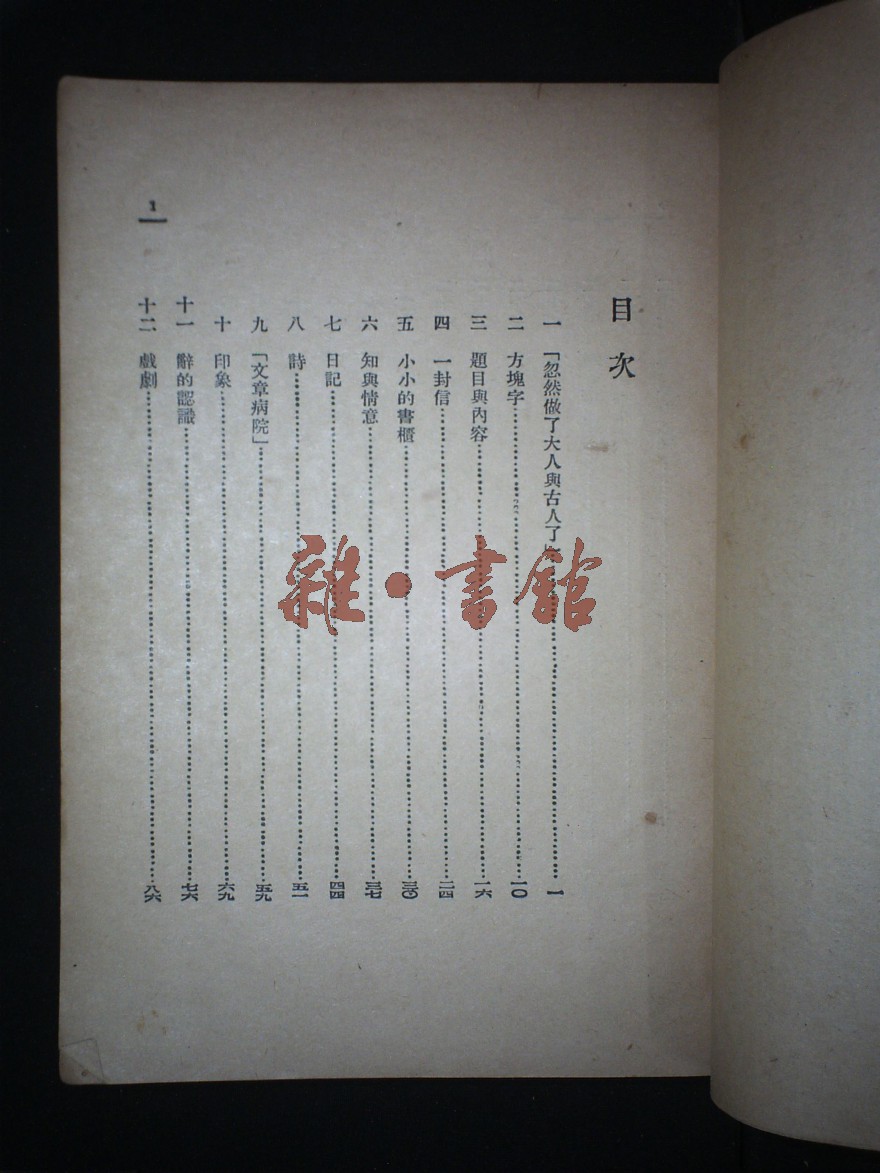 目次
一 「忽然做了大人與古人了」…………一
二 方塊字…………一〇
三 題目與內容…………一六
四 一封信…………二四
五 小小的書櫃…………三〇
六 知與情意…………三七
七 日記…………四四
八 詩…………五一
九 「文章病院」…………五九
十 印象…………六九
十一 辭的認識…………七六
十二 戲劇…………八六
1
雜·書館